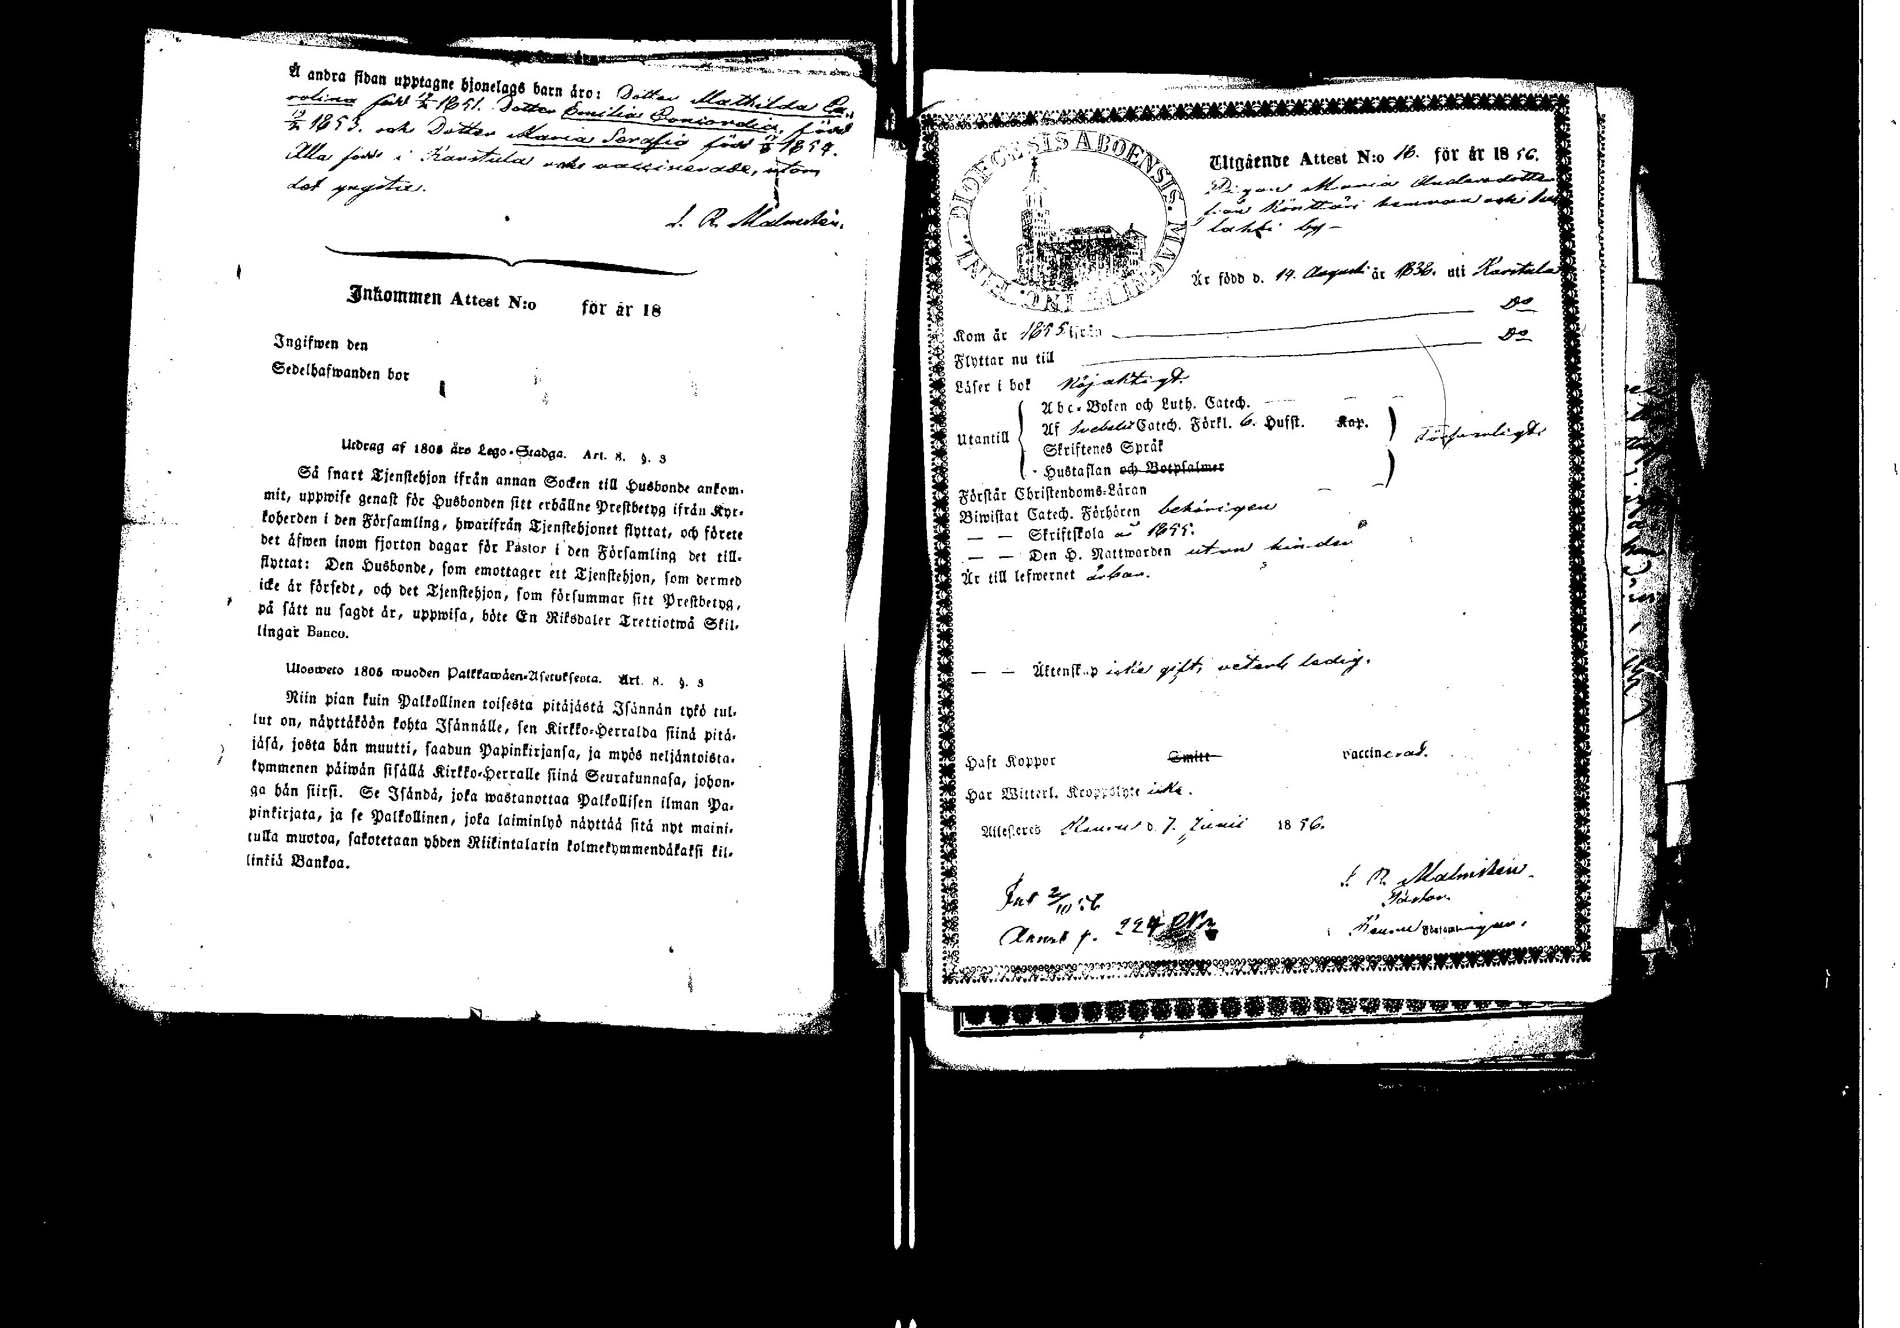 Å andra sidan upptagne hjonelags barn äro: Dotter Mathilda Ca-
rolina född 1851. Dotter Emilia Concordia, född
1853. och Dotter Maria Serafia född 1854.
Alla födde i Karstula och vaccinerade, utom
det yngsta.
R. Malmstén.
Inkommen Attest N:o för år 18
Ingifwen den
Sedelhafwanden bor
Utdrag af 1805 års Lego-Stadga. Art. 8. §. 3
Så snart Tjenstehjon ifrån annan Socken till Husbonde ankom-
mit, uppwise genast för Husbonden sitt erhållne Prestbetyg ifrån Kyr-
koherden i den Församling, hwarifrån Tjenstehjonet flyttat, och förete
det äfwen inom fjorton dagar för Pastor i den Församling det till-
flyttat: Den Husbonde, som emottager ett Tjenstehjon, som dermed
icke är försedt, och det Tjenstehjon, som försummar sitt Prestbetyg,
på sätt nu sagdt är, uppwisa, böte En Riksdaler Trettiotwå Skil-
lingar Banco.
Ulosweto 1805 wuoden Palkkawäen-Asetuksesta. Art. 8. §. 3
Niin pian kuin Palkollinen toisesta pitäjästä Isännän tykö tul-
lut on, näyttäköön kohta Isännälle, sen Kirkko-Herralda siinä pitä-
jäsä, josta hän muutti, saadun Papinkirjansa, ja myös neljäntoista-
kymmenen päiwän sisällä Kirkko-Herralle siinä Seurakunnasa, johon-
ga hän siirsi. Se Isändä, joka wastanottaa Palkollisen ilman Pa-
pinkirjata, ja se Palkollinen, joka laiminlyö näyttää sitä nyt maini-
tulla muotoa, sakotetaan yhden Riikintalarin kolmekymmendäkaksi kil-
linkiä Bankoa.
DIOECESIS ABOENSIS. MAGNI DUC. FINL.
Utgående Attest N:o 18. för år 1856.
Pigan Maria Andersdotter
från hemman och
lahti by
Är född d. 14 Augusti år 1838. uti Karstula
Kom år 1855 ifrån Do
Flyttar nu till Do
Läser i bok nöjaktigt.
Abc-Boken och Luth. Catech.
Utantill Af Svebilii Catech. Förkl. 6. Hufst. Kap. Försvarligt
Skriftenes Språk
Hustaflan och Botpsalmer
Förstår Christendoms-Läran
Biwistat Catech. Förhören behörigen
— — Skriftskola år 1855.
— — Den H. Nattwarden utan hinder
Är till lefwernet ärbar.
— — Äktenskap icke gift, veterl. ledig.
Haft Koppor Smitt vaccinerad.
Har Witterl. Kroppslyte icke.
Attesteres Keuru d. 7. Junii 1856.
R. Malmstén
Pastor
Keuru Församlingen.
224